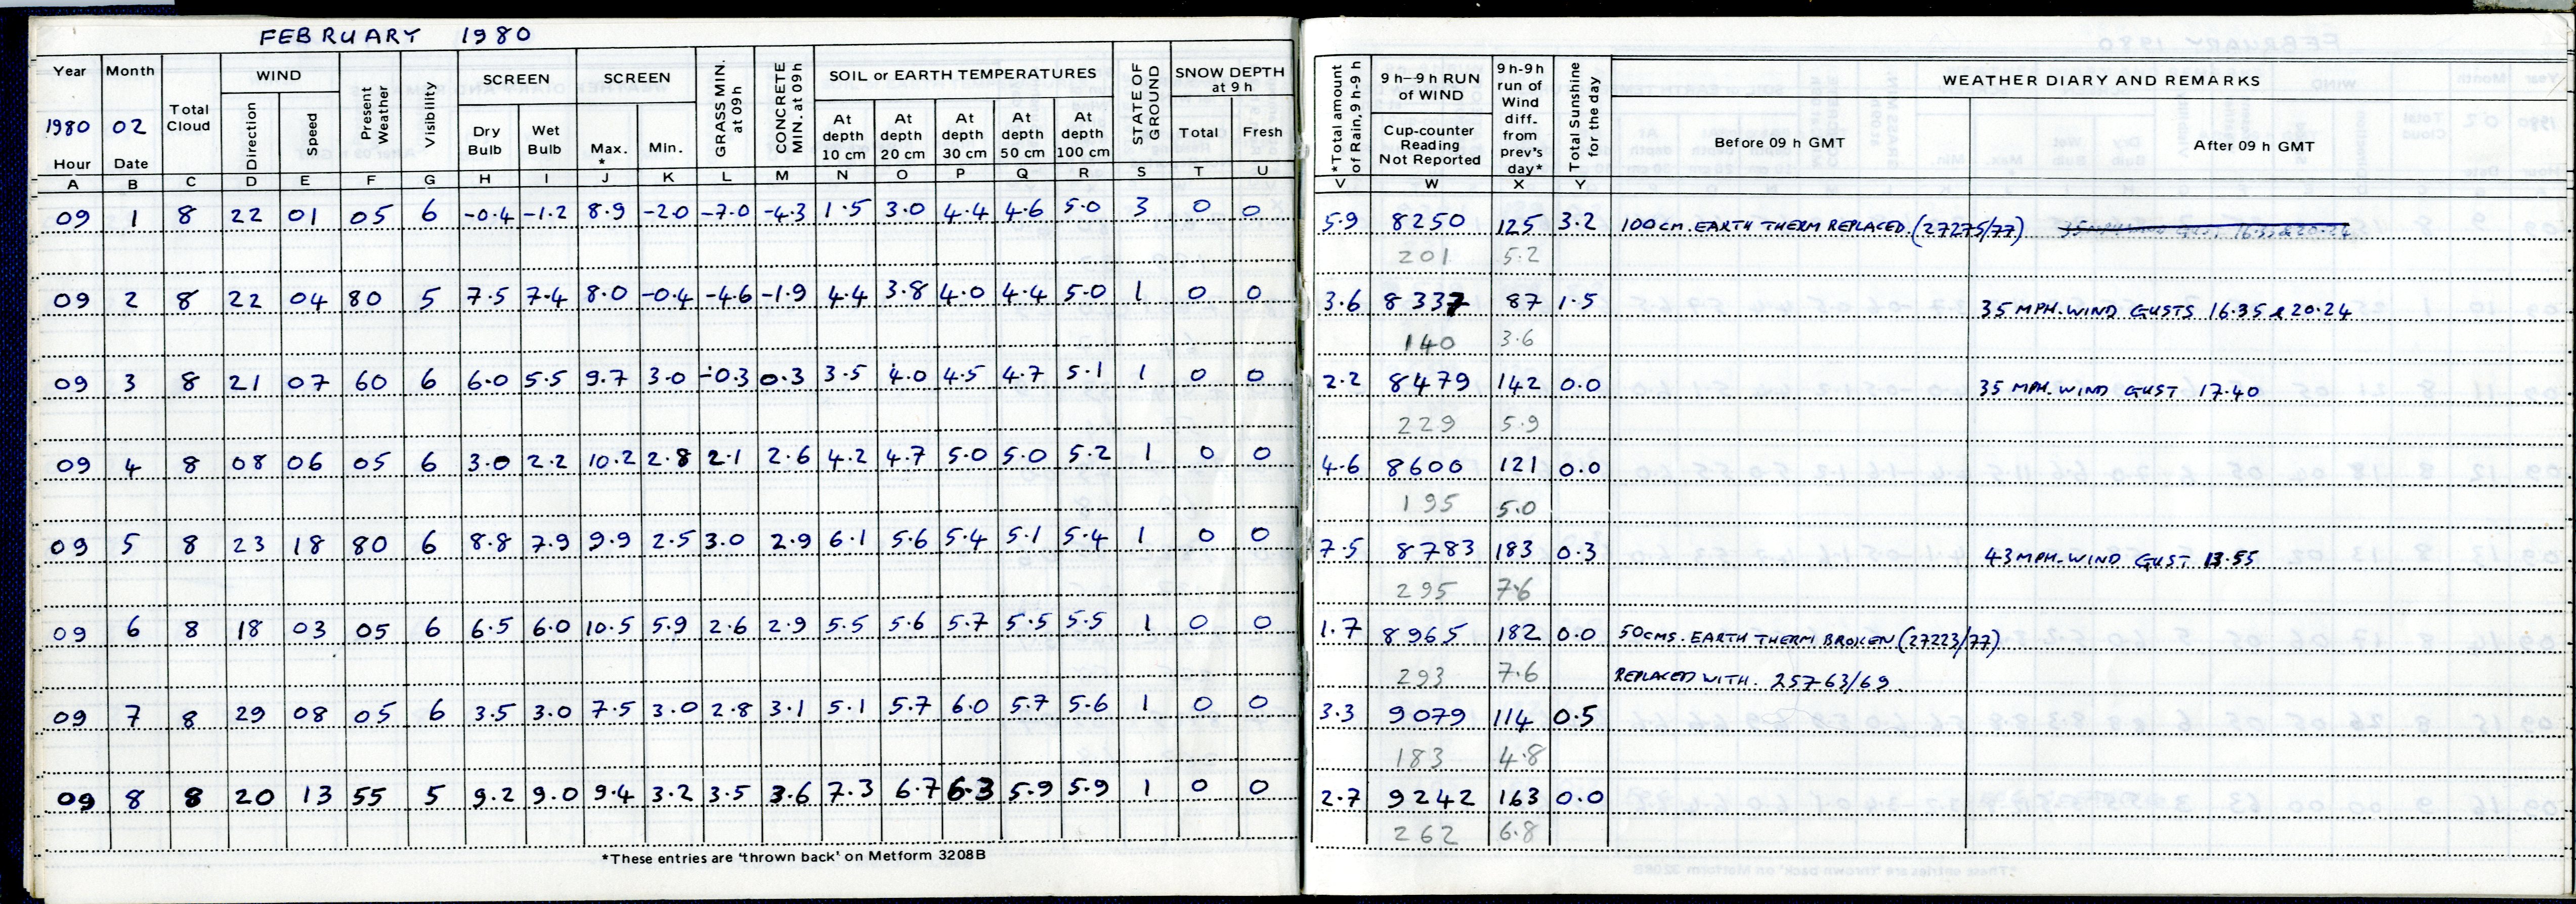 FEBRUARY 1980
Year Month Total Cloud WIND Present Weather Visibility SCREEN SCREEN GRASS MIN. at 09h CONCRETE MIN. at 09h SOIL or EARTH TEMPERATURES STATE OF GROUND SNOW DEPTH at 9 h *Total amount of Rain, 9h-9h 9 h–9 h RUN of WIND 9h-9h run of Wind diff. from prev's day* Total Sunshine for the day WEATHER DIARY AND REMARKS
1980 02 Direction Speed Dry Bulb Wet Bulb Max. * Min. At depth 10 cm At depth 20 cm At depth 30 cm At depth 50 cm At depth 100 cm Total Fresh Cup-counter Reading Not Reported Before 09 h GMT After 09 h GMT
Hour Date
A B C D E F G H I J K L M N O P Q R S T U V W X Y
09 1 8 22 01 05 6 -0.4 -1.2 8.9 -2.0 -7.0 -4.3 1.5 3.0 4.4 4.6 5.0 3 0 0 5.9 8250 125 3.2 100CM. EARTH THERM REPLACED. (27275/77)
201 5.2
09 2 8 22 04 80 5 7.5 7.4 8.0 -0.4 -4.6 -1.9 4.4 3.8 4.0 4.4 5.0 1 0 0 3.6 8337 87 1.5 35 MPH. WIND GUSTS 16.35 & 20.24
140 3.6
09 3 8 21 07 60 6 6.0 5.5 9.7 3.0 -0.3 0.3 3.5 4.0 4.5 4.7 5.1 1 0 0 2.2 8479 142 0.0 35 MPH. WIND GUST 17.40
229 5.9
09 4 8 08 06 05 6 3.0 2.2 10.2 2.8 2.1 2.6 4.2 4.7 5.0 5.0 5.2 1 0 0 4.6 8600 121 0.0
195 5.0
09 5 8 23 18 80 6 8.8 7.9 9.9 2.5 3.0 2.9 6.1 5.6 5.4 5.1 5.4 1 0 0 7.5 8783 183 0.3 43 MPH. WIND GUST 13.55
295 7.6
09 6 8 18 03 05 6 6.5 6.0 10.5 5.9 2.6 2.9 5.5 5.6 5.7 5.5 5.5 1 0 0 1.7 8965 182 0.0 50CMS. EARTH THERM BROKEN (27223/77)
293 7.6 REPLACED WITH. 25763/69
09 7 8 29 08 05 6 3.5 3.0 7.5 3.0 2.8 3.1 5.1 5.7 6.0 5.7 5.6 1 0 0 3.3 9079 114 0.5
183 4.8
09 8 8 20 13 55 5 9.2 9.0 9.4 3.2 3.5 3.6 7.3 6.7 6.3 5.9 5.9 1 0 0 2.7 9242 163 0.0
262 6.8
*These entries are 'thrown back' on Metform 3208B